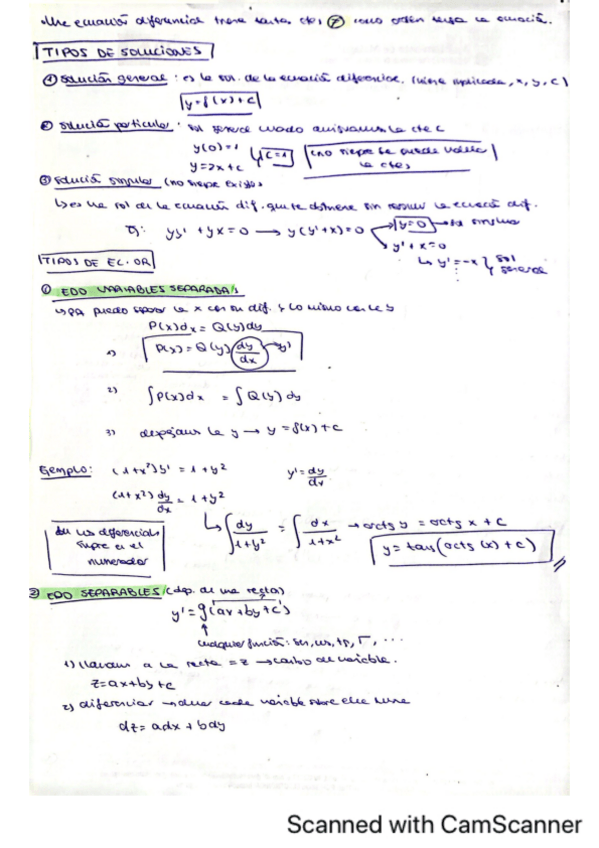 Una ecuación diferencial tiene tantas ctes como orden tenga la ecuación.
TIPOS DE SOLUCIONES
① Solución general: es la sol. de la ecuación diferencial. (viene implicada, x, y, c)
y = f(x) + c
② Solución particular: sol general cuando quitamos la cte C
y(0)=1
y=2x+c
C=1
(no siempre se puede
la cte)
③ Solución singular (no siempre existe)
↳ es una sol de la ecuación dif. que se obtiene sin resolver la ecuació dif.
Ej: yy' + yx = 0 → y(y'+x)=0 → y=0 → sol singular
y'+x=0
↳ y'=-x } sol general
TIPOS DE EC. OR
① EDO VARIABLES SEPARADAS
↳ puedo separar la x con su dif. y lo mismo con la y
P(x)dx = Q(y)dy
1) P(x) = Q(y) dy/dx → y'
2) ∫P(x)dx = ∫Q(y)dy
3) despejamos la y → y = f(x)+c
Ejemplo: (1+x²)y' = 1+y² y' = dy/dx
(1+x²) dy/dx = 1+y²
↳ ∫ dy/1+y² = ∫ dx/1+x² → arctg y = arctg x + c
y = tan(arctg(x)+c)
los diferenciales
siempre en el
numerador
② EDO SEPARABLES (dep. de una recta)
y' = g(ax+by+c)
↑
cualquier función: sen, cos, tg, √, ...
1) llamamos a la recta = z → cambio de variable.
z=ax+by+c
2) diferenciar → cada variable sobre ella
dz = adx + bdy
Scanned with CamScanner